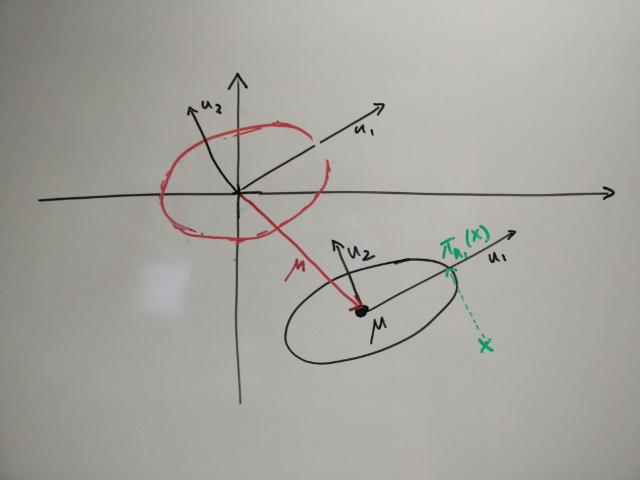 u₂
u₁
μ
u₂
π_{u₁}(x)
u₁
μ
x